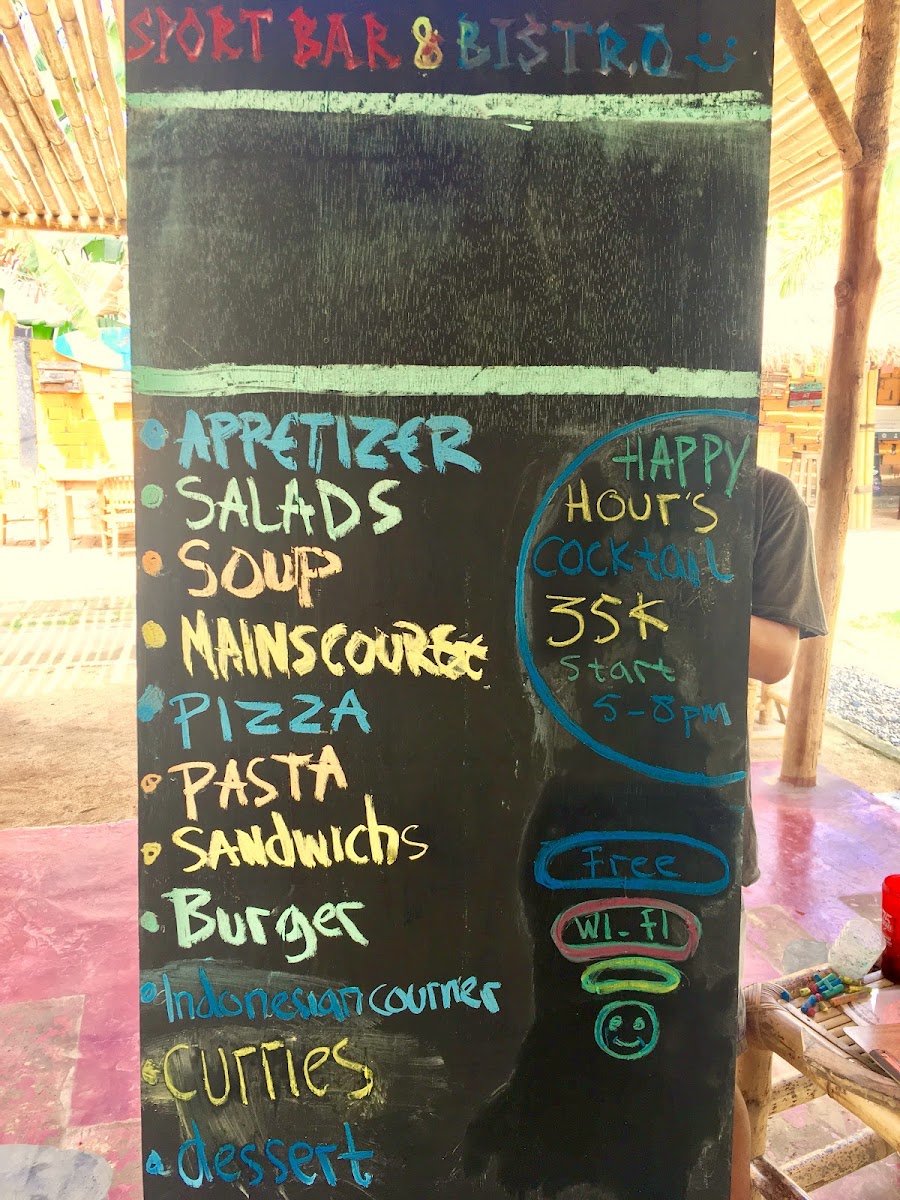 SPORT BAR & BISTRO
APPETIZER
SALADS
SOUP
MAINSCOURSE
PIZZA
PASTA
SANDWIchs
Burger
Indonesian courner
Curries
dessert
HAPPY
HOUr's
COCKtaiL
35K
Start
5-8pm
Free
WI-FI